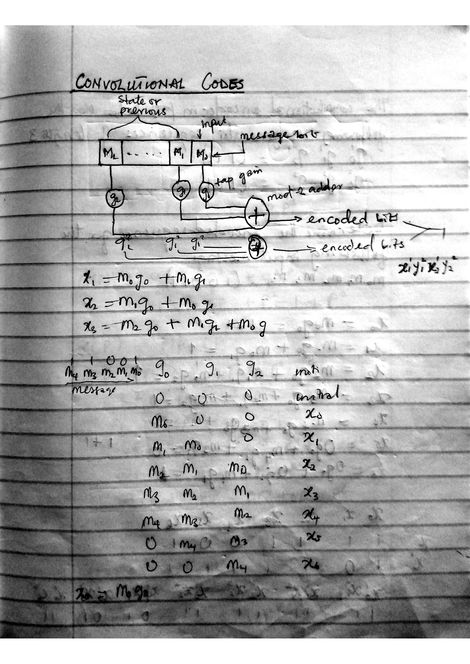 CONVOLUTIONAL CODES
State or
previous
input
message bit
M₂ ..... M₁ M₀
tap gain
g₂ g₁ g₀
mod 2 adder
+ encoded bits
g₂² g₁² + encoded bits
x₁ = m₀g₀ + m₁g₁
x₂ = m₁g₀ + m₀g₁
x₃ = m₂g₀ + m₁g₂ + m₀g
1 1 0 0 1
m₄ m₃ m₂ m₁ m₀ g₀ g₁ g₂
message
0 0 0 initial
m₀ 0 0 x₀
m₁ m₀ 0 x₁
m₂ m₁ m₀ x₂
m₃ m₂ m₁ x₃
m₄ m₃ m₂ x₄
0 m₄ m₃ x₅
0 0 m₄ x₆
x₀ = m₀g₀